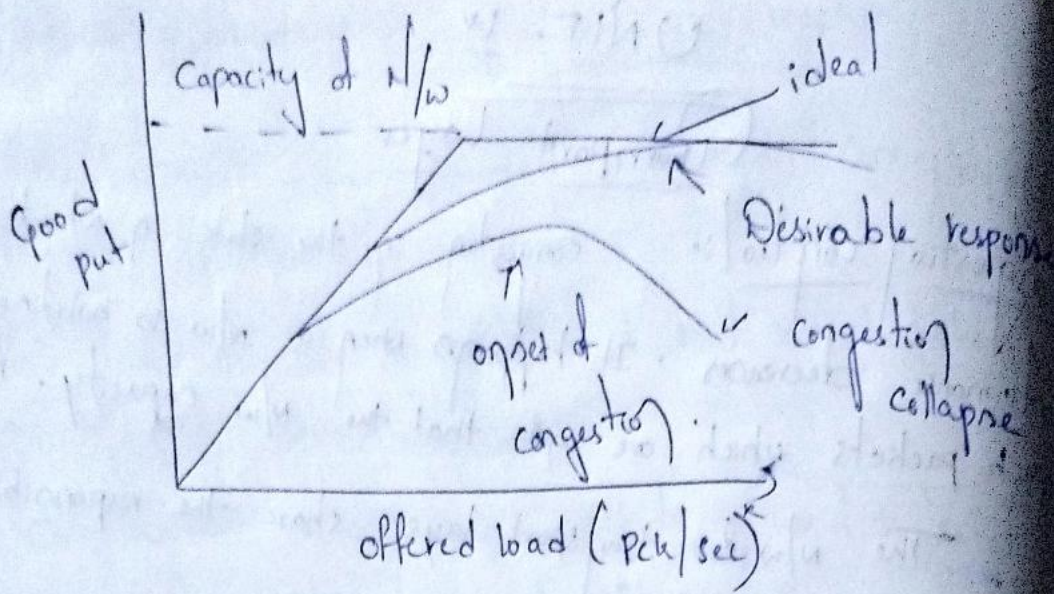 Capacity of N/w
ideal
Good
put
Desirable response
onset of
congestion
congestion
collapse
offered load (pck/sec)